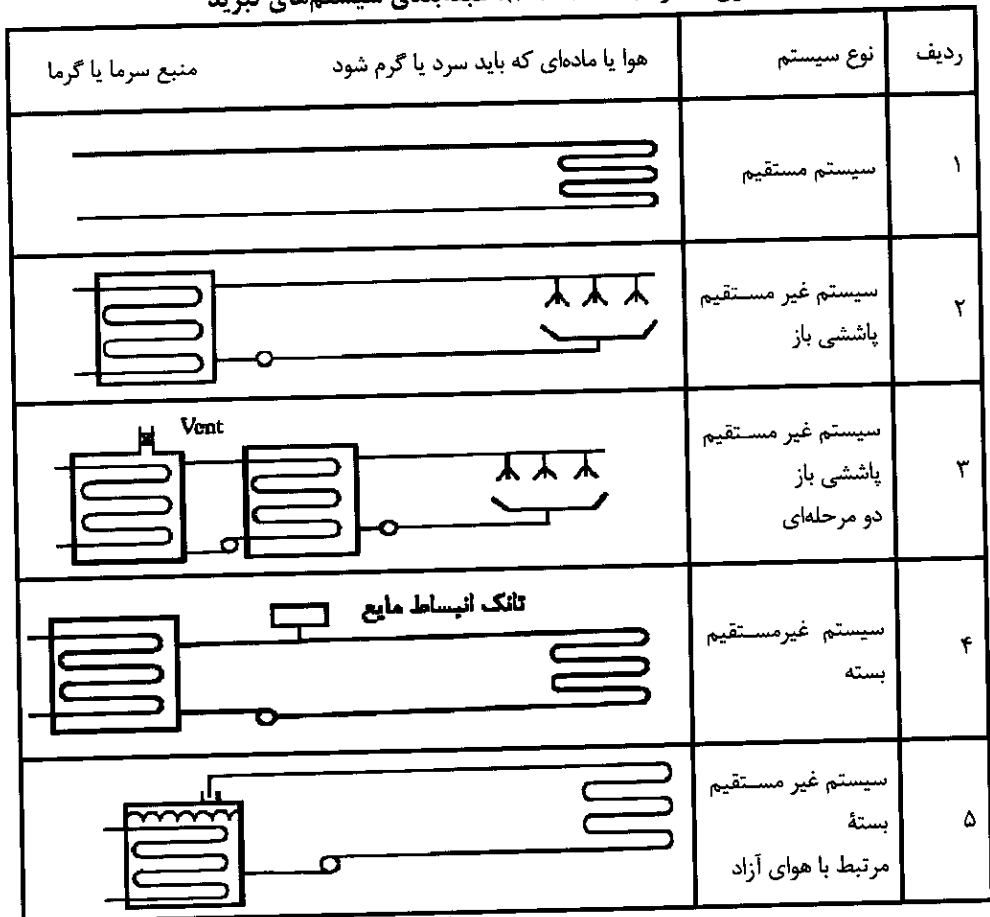 طبقه‌بندی سیستم‌های تبرید
ردیف
نوع سیستم
هوا یا ماده‌ای که باید سرد یا گرم شود
منبع سرما یا گرما
۱
سیستم مستقیم
۲
سیستم غیر مستقیم
پاششی باز
۳
سیستم غیر مستقیم
پاششی باز
دو مرحله‌ای
Vent
۴
سیستم غیرمستقیم
بسته
تانک انبساط مایع
۵
سیستم غیر مستقیم
بستۀ
مرتبط با هوای آزاد